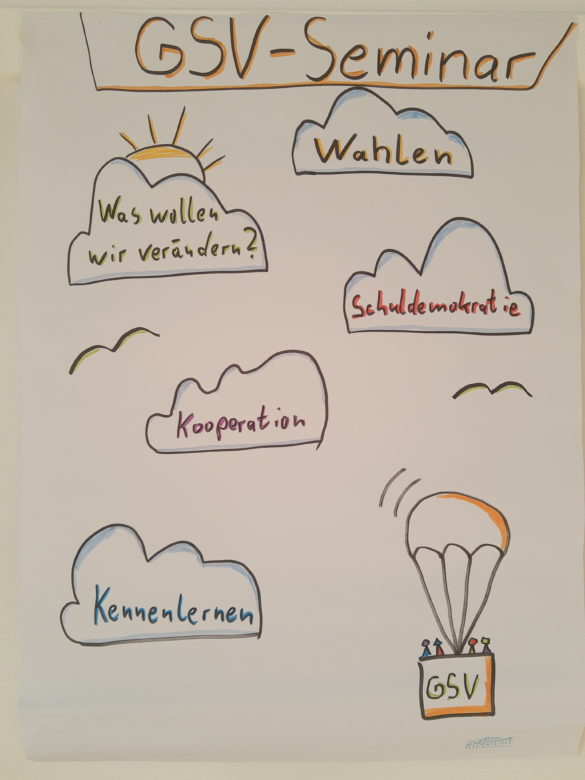 GSV-Seminar
Wahlen
Was wollen
wir verändern?
Schuldemokratie
Kooperation
Kennenlernen
GSV